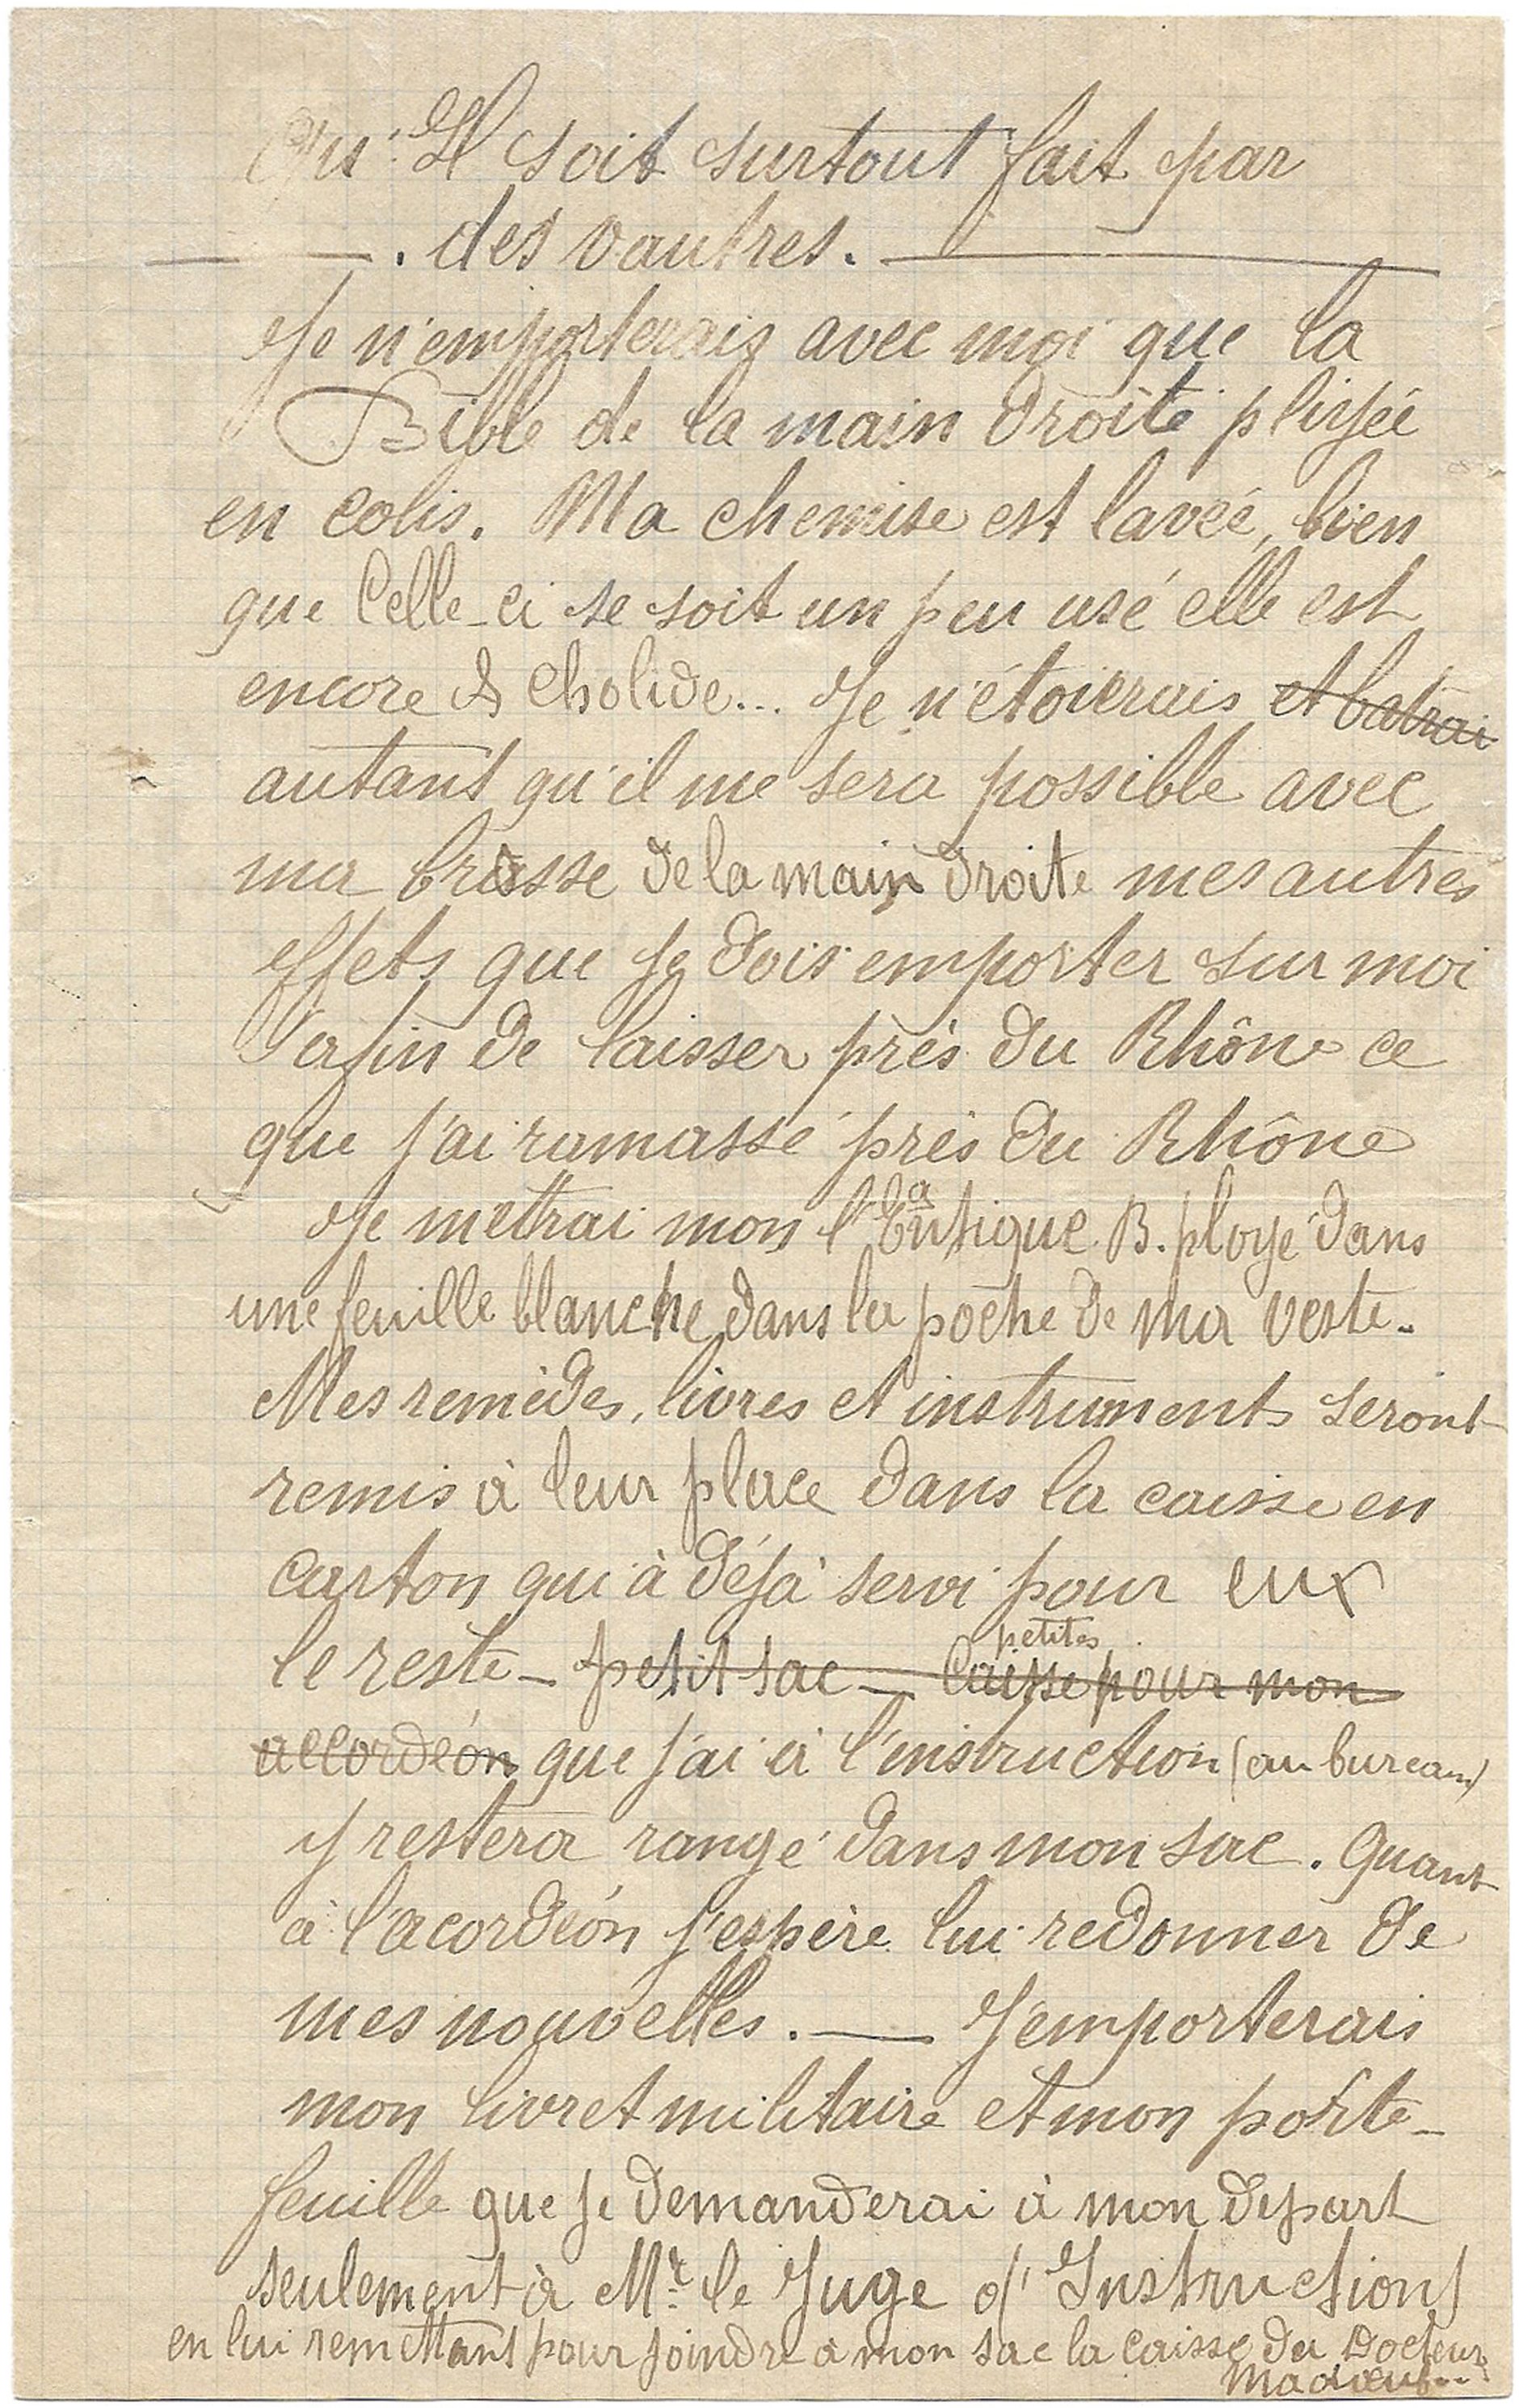 Qu'Il soit surtout fait par
. des vautres.
Je n'emporterais avec moi que la
Bible de la main droite pliyée
en colis. Ma chemise est lavéé, bien
que Celle-ci se soit un peu usé elle est
encore cholide... Je n'étoierais et batrai
autant qu'il me sera possible avec
ma brosse de la main droite mes autres
effets que je dois emporter sur moi
afin de laisser près du Rhône ce
que j'ai ramassé près du Rhône
Je metrai mon B. ployé dans
une feuille blanche dans la poche de ma veste.
Mes remèdes, livres et instruments seront
remis à leur place dans la caisse en
carton qui à déjà servi pour eux
le reste - petit sac - petites Caisse pour mon
accordéon que j'ai à l'instruction (au bureau)
y restera rangé dans mon sac. Quant
à l'acordéon j'espère lui redonner de
mes nouvelles. — J'emporterais
mon livret militaire et mon porte-
feuille que je demanderai à mon départ
seulement à Mr. le Juge d'Instruction
en lui remettant pour joindre à mon sac la caisse du Docteur
Madieuf..